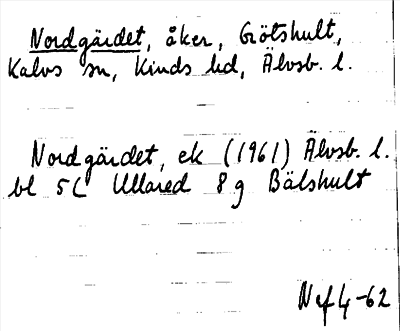 Nordgärdet, åker, Grötshult,
Kalvs sn, Kinds hd, Älvsb. l.
Nordgärdet, ek (1961) Älvsb. l.
bl 5C Ullared 8g Bälshult
Nef 4-62